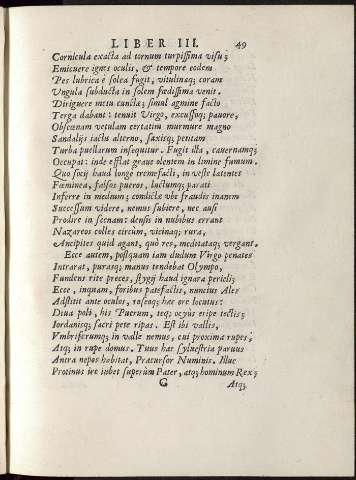 LIBER III. 49
Cornicula exacta ad tornum turpissima visu;
Emicuere ignes oculis, & tempore eodem
Pes lubrica è solea fugit, vitulinaq; coram
Ungula subducta in solem fœdissima venit.
Diriguere metu cuncta; simul agmine facto
Terga dabant: tenuit Virgo, excussoq; pauore,
Obscœnam vetulam certatim murmure magno
Sandalijs iactis alterno, saxisq; petitam
Turba puellarum insequitur. Fugit illa, cauernamq;
Occupat: inde efflat graue olentem in limine fumum.
Quo socij haud longe tremefacti, in veste latentes
Fæminea, falsos pueros, luctumq; parati
Inferre in medium; condicta vbi fraudis inanem
Successum videre, nemus subiere, nec ausi
Prodire in scenam: densis in nubibus errant
Nazareos colles circum, vicinaq; rura,
Ancipites quid agant, quò res, meditataq; vergant.
Ecce autem, postquam iam dudum Virgo penates
Intrarat, purasq; manus tendebat Olympo,
Fundens rite preces, stygij haud ignara pericli;
Ecce, inquam, foribus patefactis, nuncius Ales
Adstitit ante oculos, roseoq; hæc ore locutus:
Diua poli, his Puerum, teq; ocyùs eripe tectis;
Iordanisq; sacri pete ripas. Est ibi vallis,
Vmbriferumq; in valle nemus, cui proxima rupes,
Atq; in rupe domus. Tuus hæc syluestria paruus
Antra nepos habitat, Præcursor Numinis. Illuc
Protinus ire iubet superûm Pater, atq; hominum Rex;
G Atq;